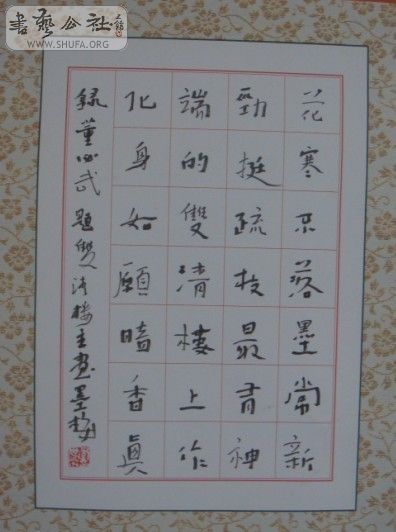 書藝公社
WWW.SHUFA.ORG
花寒不落墨常新
勁挺疏枝最有神
端的雙清樓上作
化身如願暗香眞
錄董必武題雙清樓主畫墨梅